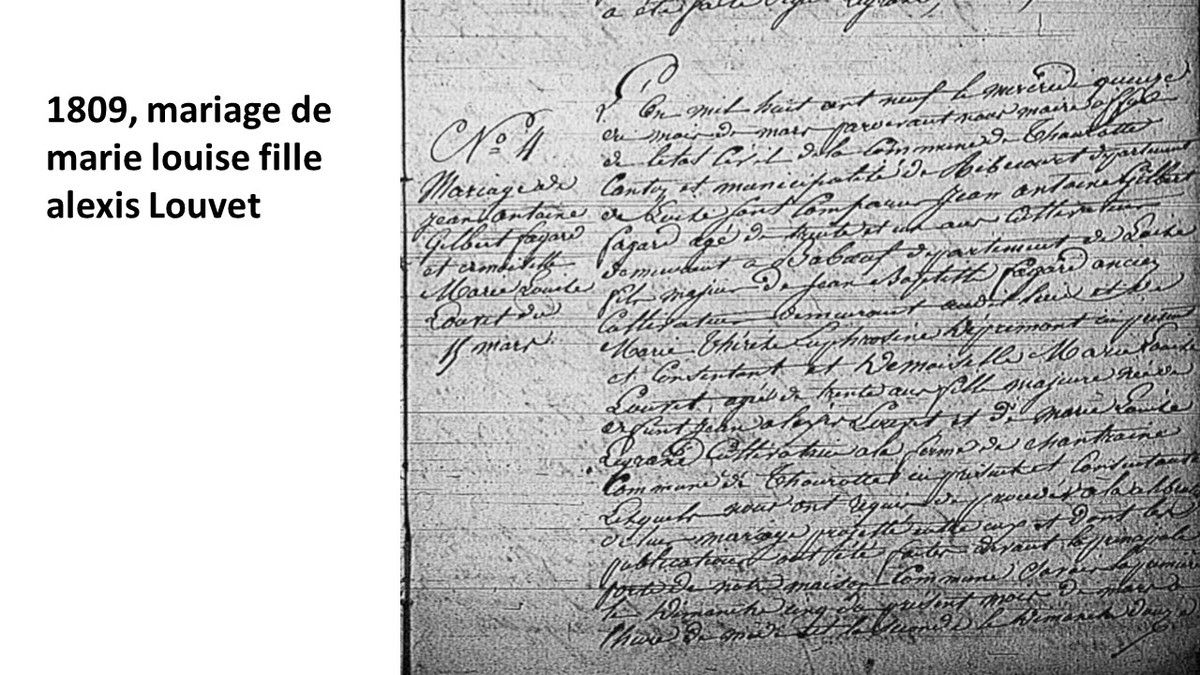 1809, mariage de
marie louise fille
alexis Louvet
a été faite
N° 4
Mariage de
jean antoine
Gilbert fagard
et demoiselle
Marie Louise
Louvet du
15 mars.
L'En mil huit cent neuf le mercredi quinze
du mois de mars pardevant nous maire officier
de letat Civil de la Commune de Thourotte
Canton et municipalité de Ribecourt département
de Loise sont Comparus Jean antoine Gilbert
fagard agé de trente et un ans Cultivateur
demeurant a Babœuf département de Loise
fils majeur de Jean Baptiste fagard ancien
Cultivateur demeurant audit lieu et de
Marie Thérèse Euphrosine Déprimont cy présent
et Consentant et Demoiselle Marie Louise
Louvet, agée de trente ans fille majeure née de
defunt Jean alexis Louvet et de Marie Louise
Legrand Cultivatrice a la ferme de Chantraine
Commune de Thourotte cy présente et Consentante
Lesquels nous ont requis de procéder a la
de leur mariage projetté entre eux et dont les
publications ont été faites devant la principale
porte de notre maison Commune Savoir la première
le Dimanche cinq du présent mois de mars a
lheure de midi et la seconde le Dimanche Douze